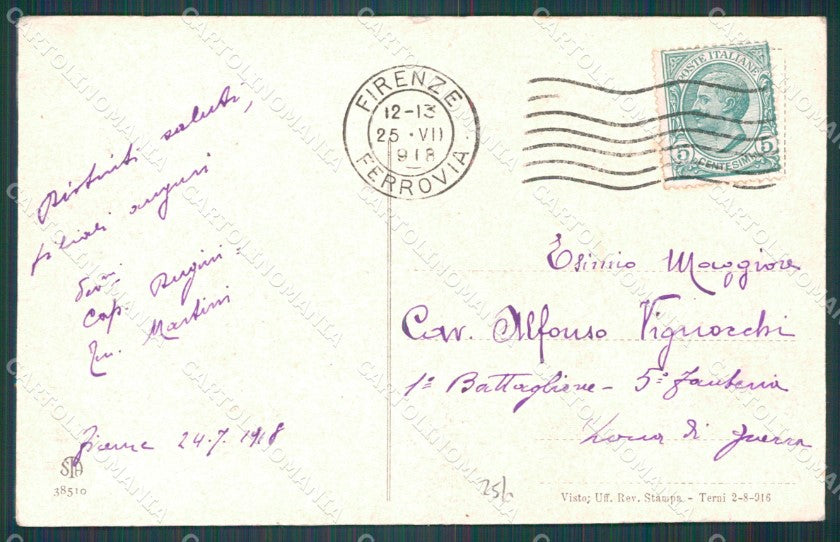 Distinti saluti,
filiali auguri
Dev.mi
Cap. Rugini =
Ten. Martini
Firenze 24.7.1918
STA
38510
FIRENZE
12-13
25·VII
918
FERROVIA
POSTE ITALIANE
5 5
CENTESIMI
Esimio Maggiore
Cav. Alfonso Vignocchi
1º Battaglione - 5º Fanteria
Zona di guerra
25/-
Visto; Uff. Rev. Stampa. - Terni 2-8-916
CARTOLINOMANIA